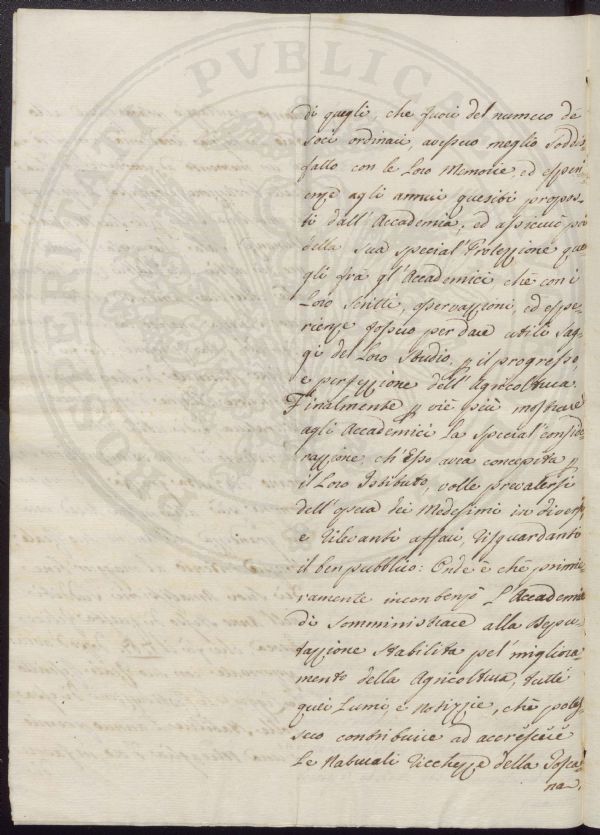 di quegli, che fuori del numero de
soci ordinarj, avessero meglio soddis
fatto con le loro Memorie, ed esperi
enze agli annui quesiti propos-
ti dall'Accademia, ed assicurò poi
della sua special Protezzione que-
gli frà gl'Accademici che con i
loro Scritti, osservazzioni, ed espe-
rienze fossero per dare utili sag-
gi del loro Studio, p il progresso,
e perfezzione dell'Agricoltura.
Finalmente p viè più mostrare
agli Accademici la special'conside
razzione, ch'Esso avea concepita p
il loro Istituto, volle prevalersi
dell'opera dei Medesimi in diversi
e rilevanti affari, risguardanti
il ben pubblico: Onde è che primie
ramente incombenzò l'Accademia
di somministrare alla Depu-
tazzione stabilita pel'migliora-
mento della Agricoltura, tutti
quei Lumi, e notizzie, che potes-
sero contribuire ad accrescere
le Naturali ricchezze della Tosca
na.
PROSPERITATI PVBLICAE